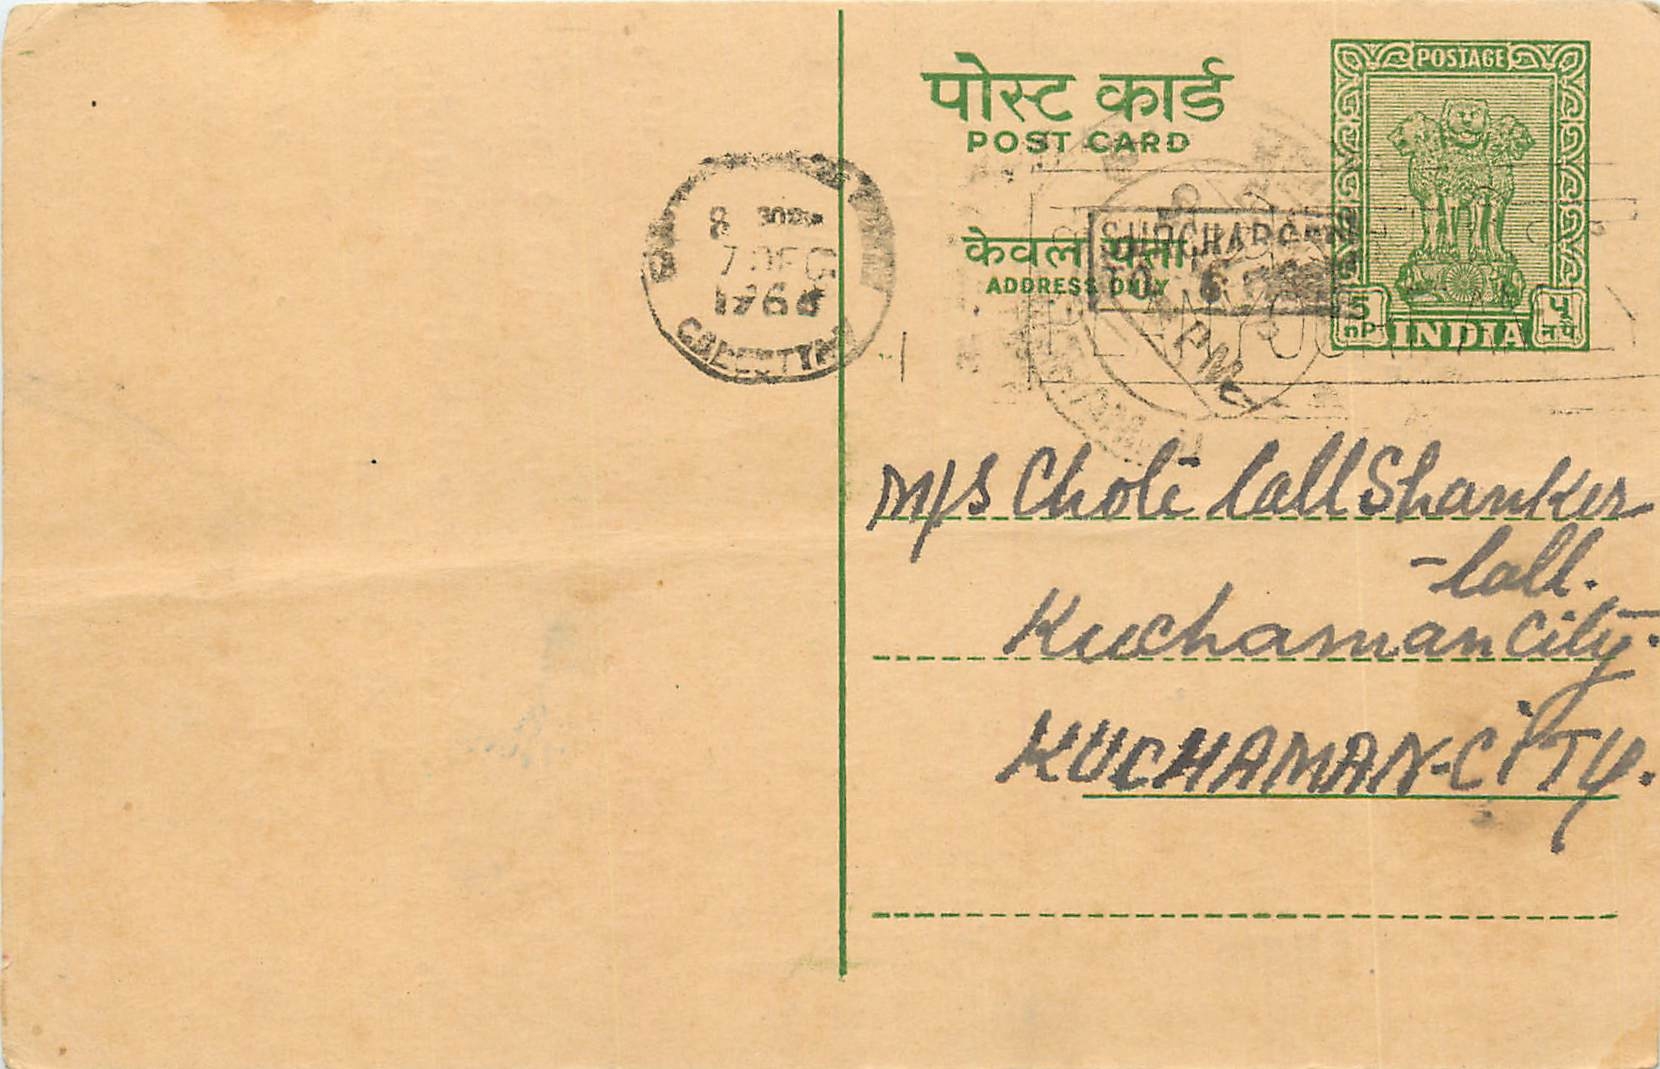 पोस्ट कार्ड
POST CARD
POSTAGE
8 30
7 DEC
1966
CALCUTTA
केवल पता
ADDRESS ONLY
SURCHARGED
TO 6
P.M.
5
nP
INDIA
५
न.पै.
M/S Chote lall Shanker
-lall.
Kuchaman City.
KUCHAMAN-CITY.